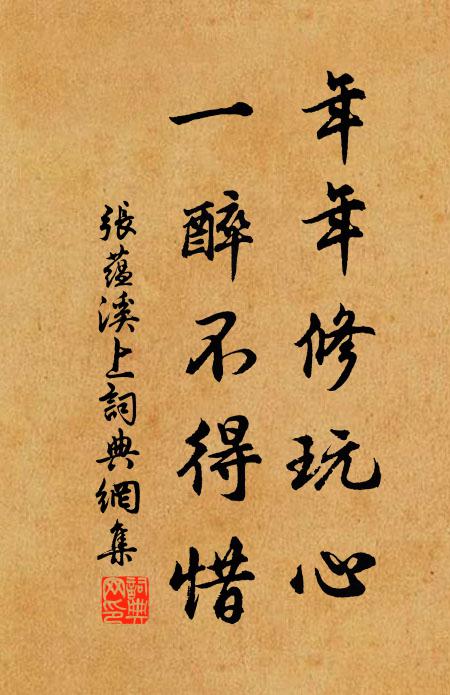 年年修玩心
一醉不得惜
張蘊溪上詞典網集
詞典
网印